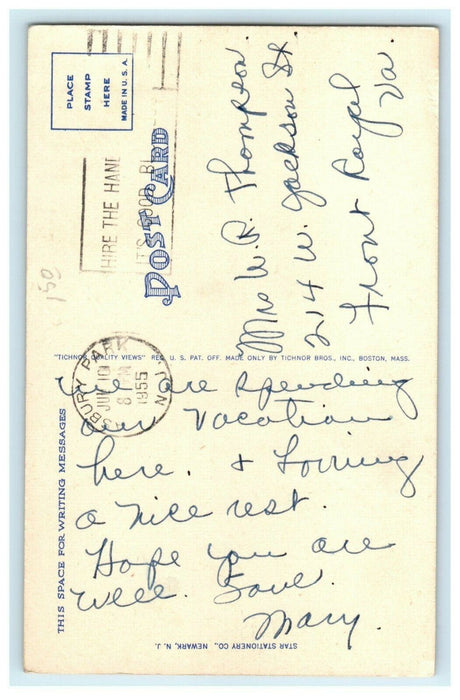 PLACE
STAMP
HERE
MADE IN U.S.A.
HIRE THE HANDI
IT'S GOOD BU
POST CARD
Mrs W. R. Thompson.
214 W. Jackson St.
Front Royal
Va.
"TICHNOR QUALITY VIEWS" REG. U. S. PAT. OFF. MADE ONLY BY TICHNOR BROS., INC., BOSTON, MASS.
BURY PARK
N.J.
JUL 10
1955
THIS SPACE FOR WRITING MESSAGES
We are spending
our Vacation
here. &
a nice rest.
Hope you are
well. Love
Mary.
STAR STATIONERY CO., NEWARK, N. J.
150